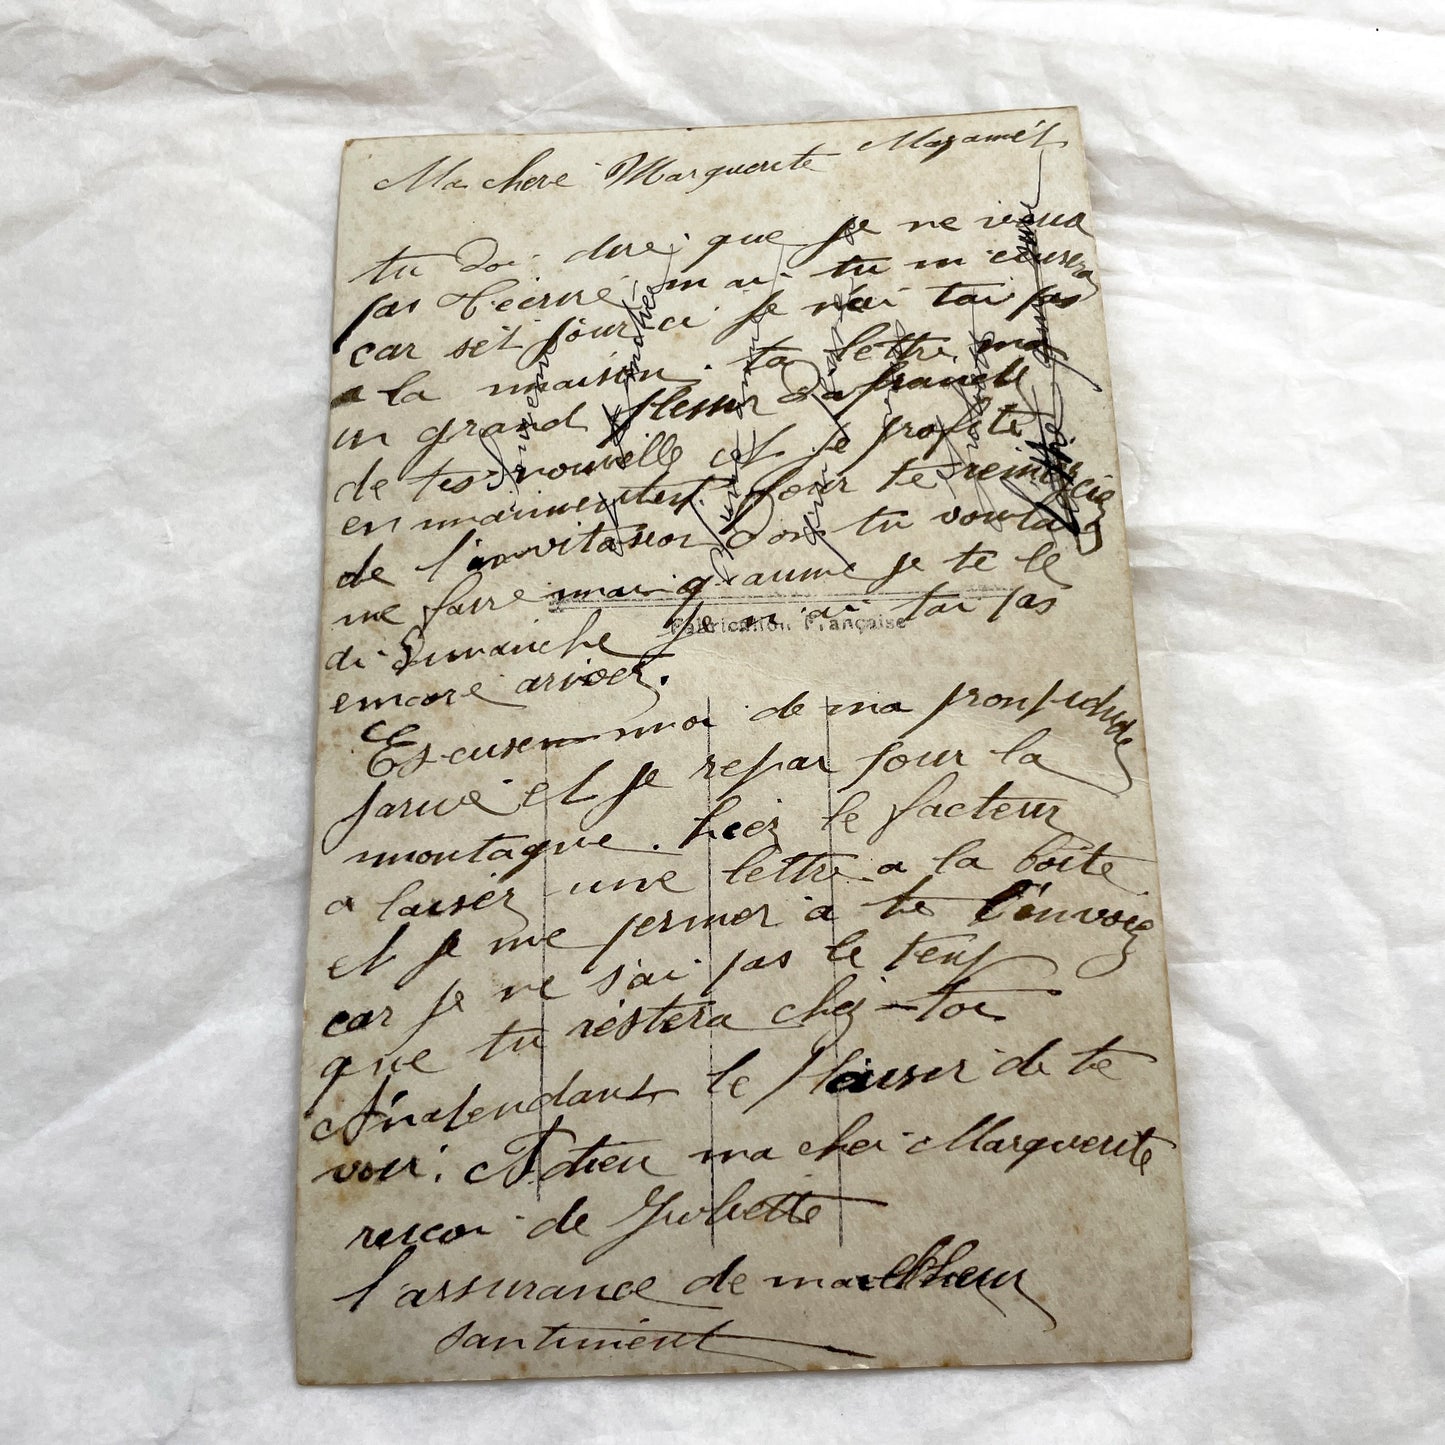 Ma chere Marguerite Mazamét
tu doi dire que je ne veux
pas t'écrire mai tu m'éxusera
car sét jour ci je n'ai tai pas
a la maison. ta lettre ma
un grand plesir d'aprandre
de tes nouvelle et je profite
en maimentent pour te remercier
de l'invitasion don tu voula
me faire mai quaume je te le
di Dimanche je n'ai tai pas
encore ariver.
Fabrication Française
Escuse moi de ma promptidude
parue et je repar pour la
montagne. hier le facteur
a laiser une lettre a la boite
et je me permer a te l'envoiez
car je ne s'ai pas le temp
que tu réstera chez-toi
A'natendant le plaiser de te
voir. Adieu ma cher Marguerite
resoi de Juliette
l'assurance de mailleur
santiment